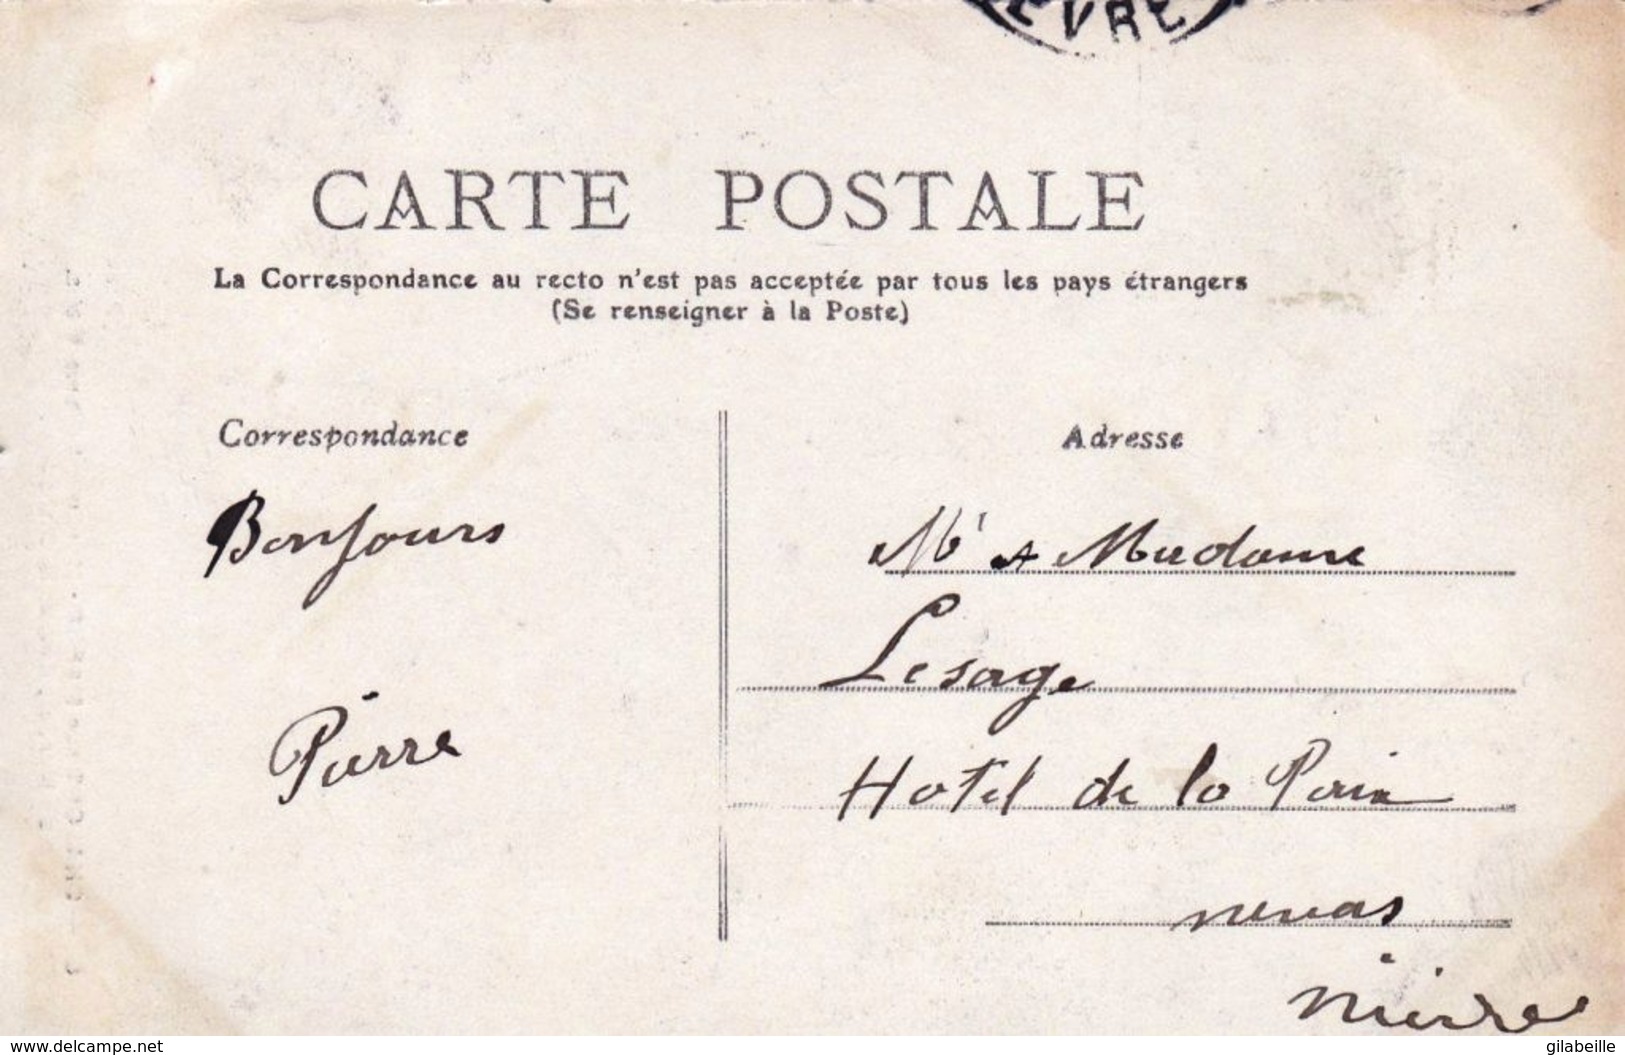 EVRE
CARTE POSTALE
La Correspondance au recto n'est pas acceptée par tous les pays étrangers
(Se renseigner à la Poste)
Correspondance
Bonjours
Pierre
Adresse
Mr & Madame
Lesage
Hotel de la Paix
nevas
nièvre
www.delcampe.net
gilabeille